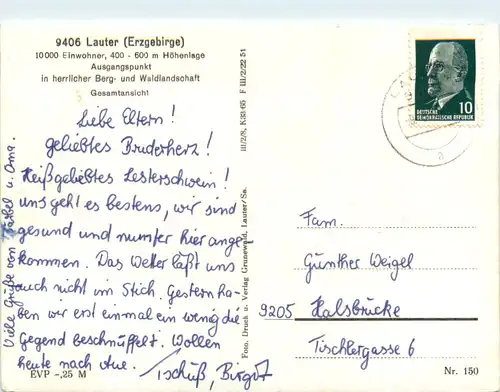 9406 Lauter (Erzgebirge)
10000 Einwohner, 400 - 600 m Höhenlage
Ausgangspunkt
in herrlicher Berg- und Waldlandschaft
Gesamtansicht
Liebe Eltern!
geliebtes Bruderherz!
Heißgeliebtes Lesterschwein!
uns geht es bestens, wir sind
gesund und munter hier ange-
kommen. Das Wetter läßt uns
auch nicht im Stich. Gestern ha-
ben wir erst einmal ein wenig die
Gegend beschnüffelt. Wollen
heute nach Aue.
Tschüß, Birgit
Viele Grüße von u. Oma.
EVP -,25 M
Foto, Druck u. Verlag Grunewald, Lauter/Sa. III/2/8, K33/65 F III/2/22 51
10
DEUTSCHE
DEMOKRATISCHE REPUBLIK
a
Fam.
Günther Weigel
9205 Halsbrücke
Tischlergasse 6
Nr. 150